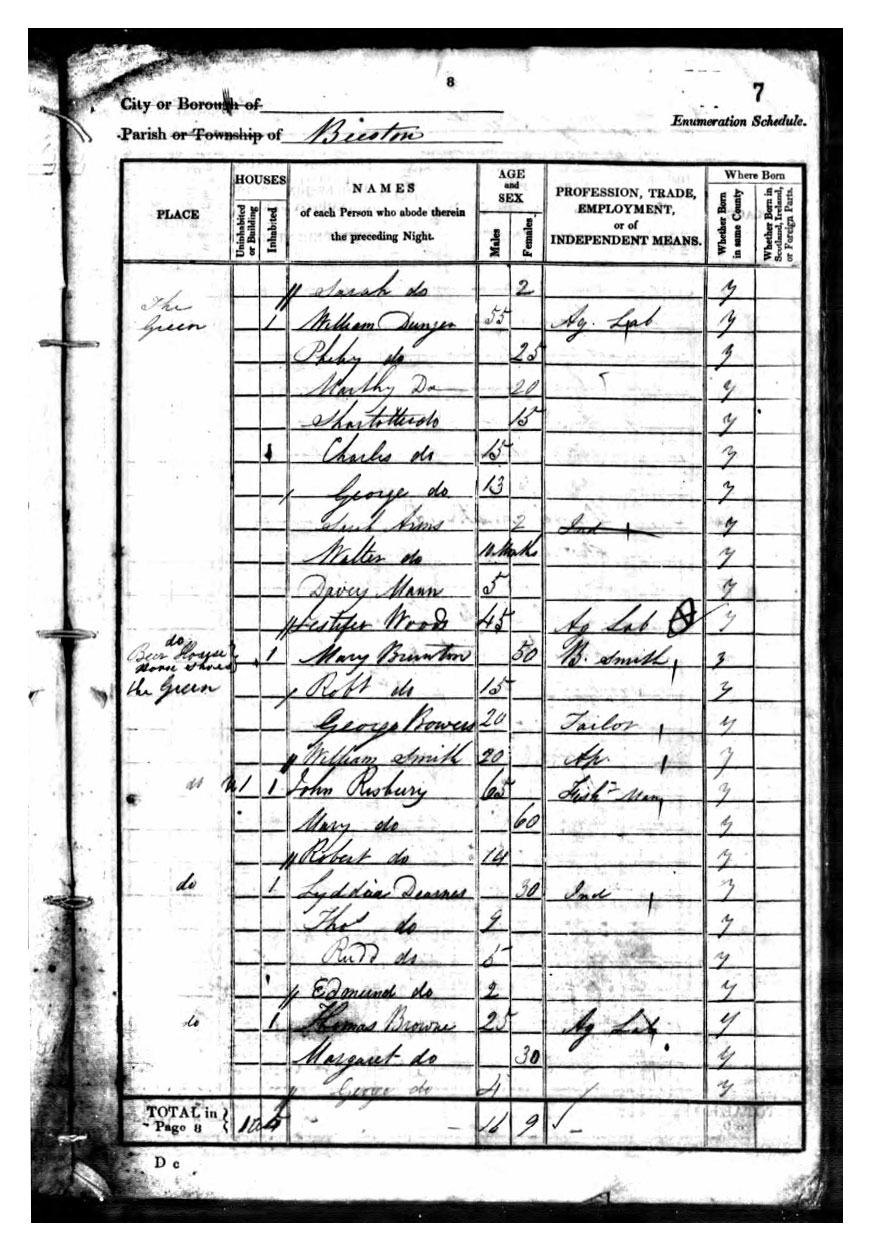 8
7
City or Borough of
Parish or Township of Beeston
Enumeration Schedule.
PLACE
HOUSES
Uninhabited or Building
Inhabited
NAMES
of each Person who abode therein
the preceding Night.
AGE
and
SEX
Males
Females
PROFESSION, TRADE,
EMPLOYMENT,
or of
INDEPENDENT MEANS.
Where Born
Whether Born in same County
Whether Born in Scotland, Ireland, or Foreign Parts.
Sarah do 2 y
The
Green 1 William 55 Ag. Lab y
Pheby do 25 y
Marthy Do 20 y
do 15 y
Charles do 15 y
George do 13 y
Arms 2 Ind y
Walter do 10 Mnths y
Davey Mann 5 y
Woods 45 Ag Lab y
do
Beer House
Horse Shoes 1 Mary Brunton 50 B. Smith y
the Green Robt do 15 y
George Bowers 20 Tailor y
William Smith 20 Ap. y
do 1 1 John Risbury 65 Fish Man y
Mary do 60 y
Robert do 14 y
do 1 Lyddia Dearnes 30 Ind y
Thos do 9 y
Rudd do 5 y
Edmund do 2 y
do 1 Thomas Browne 25 Ag Lab y
Margaret do 30 y
George do 4 y
TOTAL in
Page 8 16 9
D c